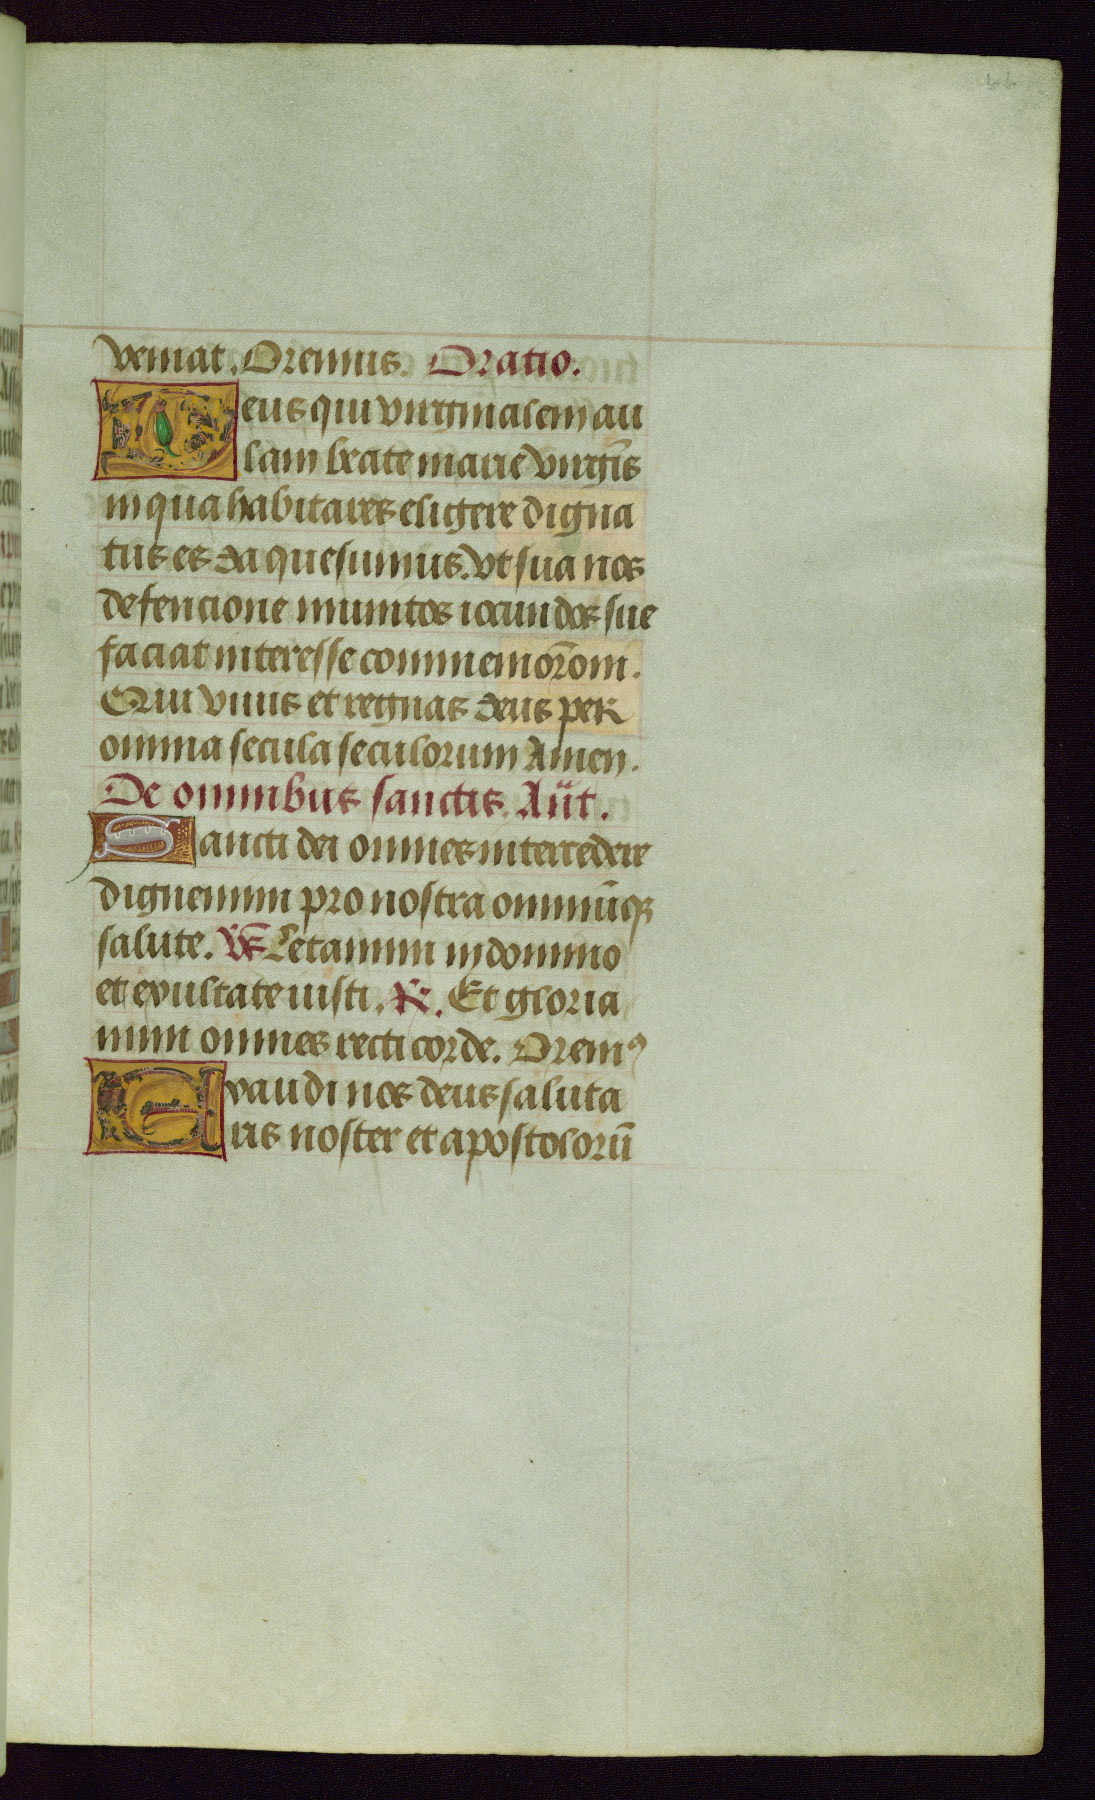 veniat. Oremus. Oratio.
Deus qui virginalem au
lam beate marie virgīs
in qua habitares eligere digna
tus es da quesumus. vt sua nos
defencione munitos iocundos sue
faciat interesse commemorōni.
Qui viuis et regnas deus per
omnia secula seculorum Amen.
De omnibus sanctis. Añt.
Sancti dei omnes intercedere
dignemini pro nostra omniūq;
salute. V̄s Letamini in domino
et exultate iusti. R. Et gloria
mini omnes recti corde. Orem9
Exaudi nos deus saluta
ris noster et apostolorū